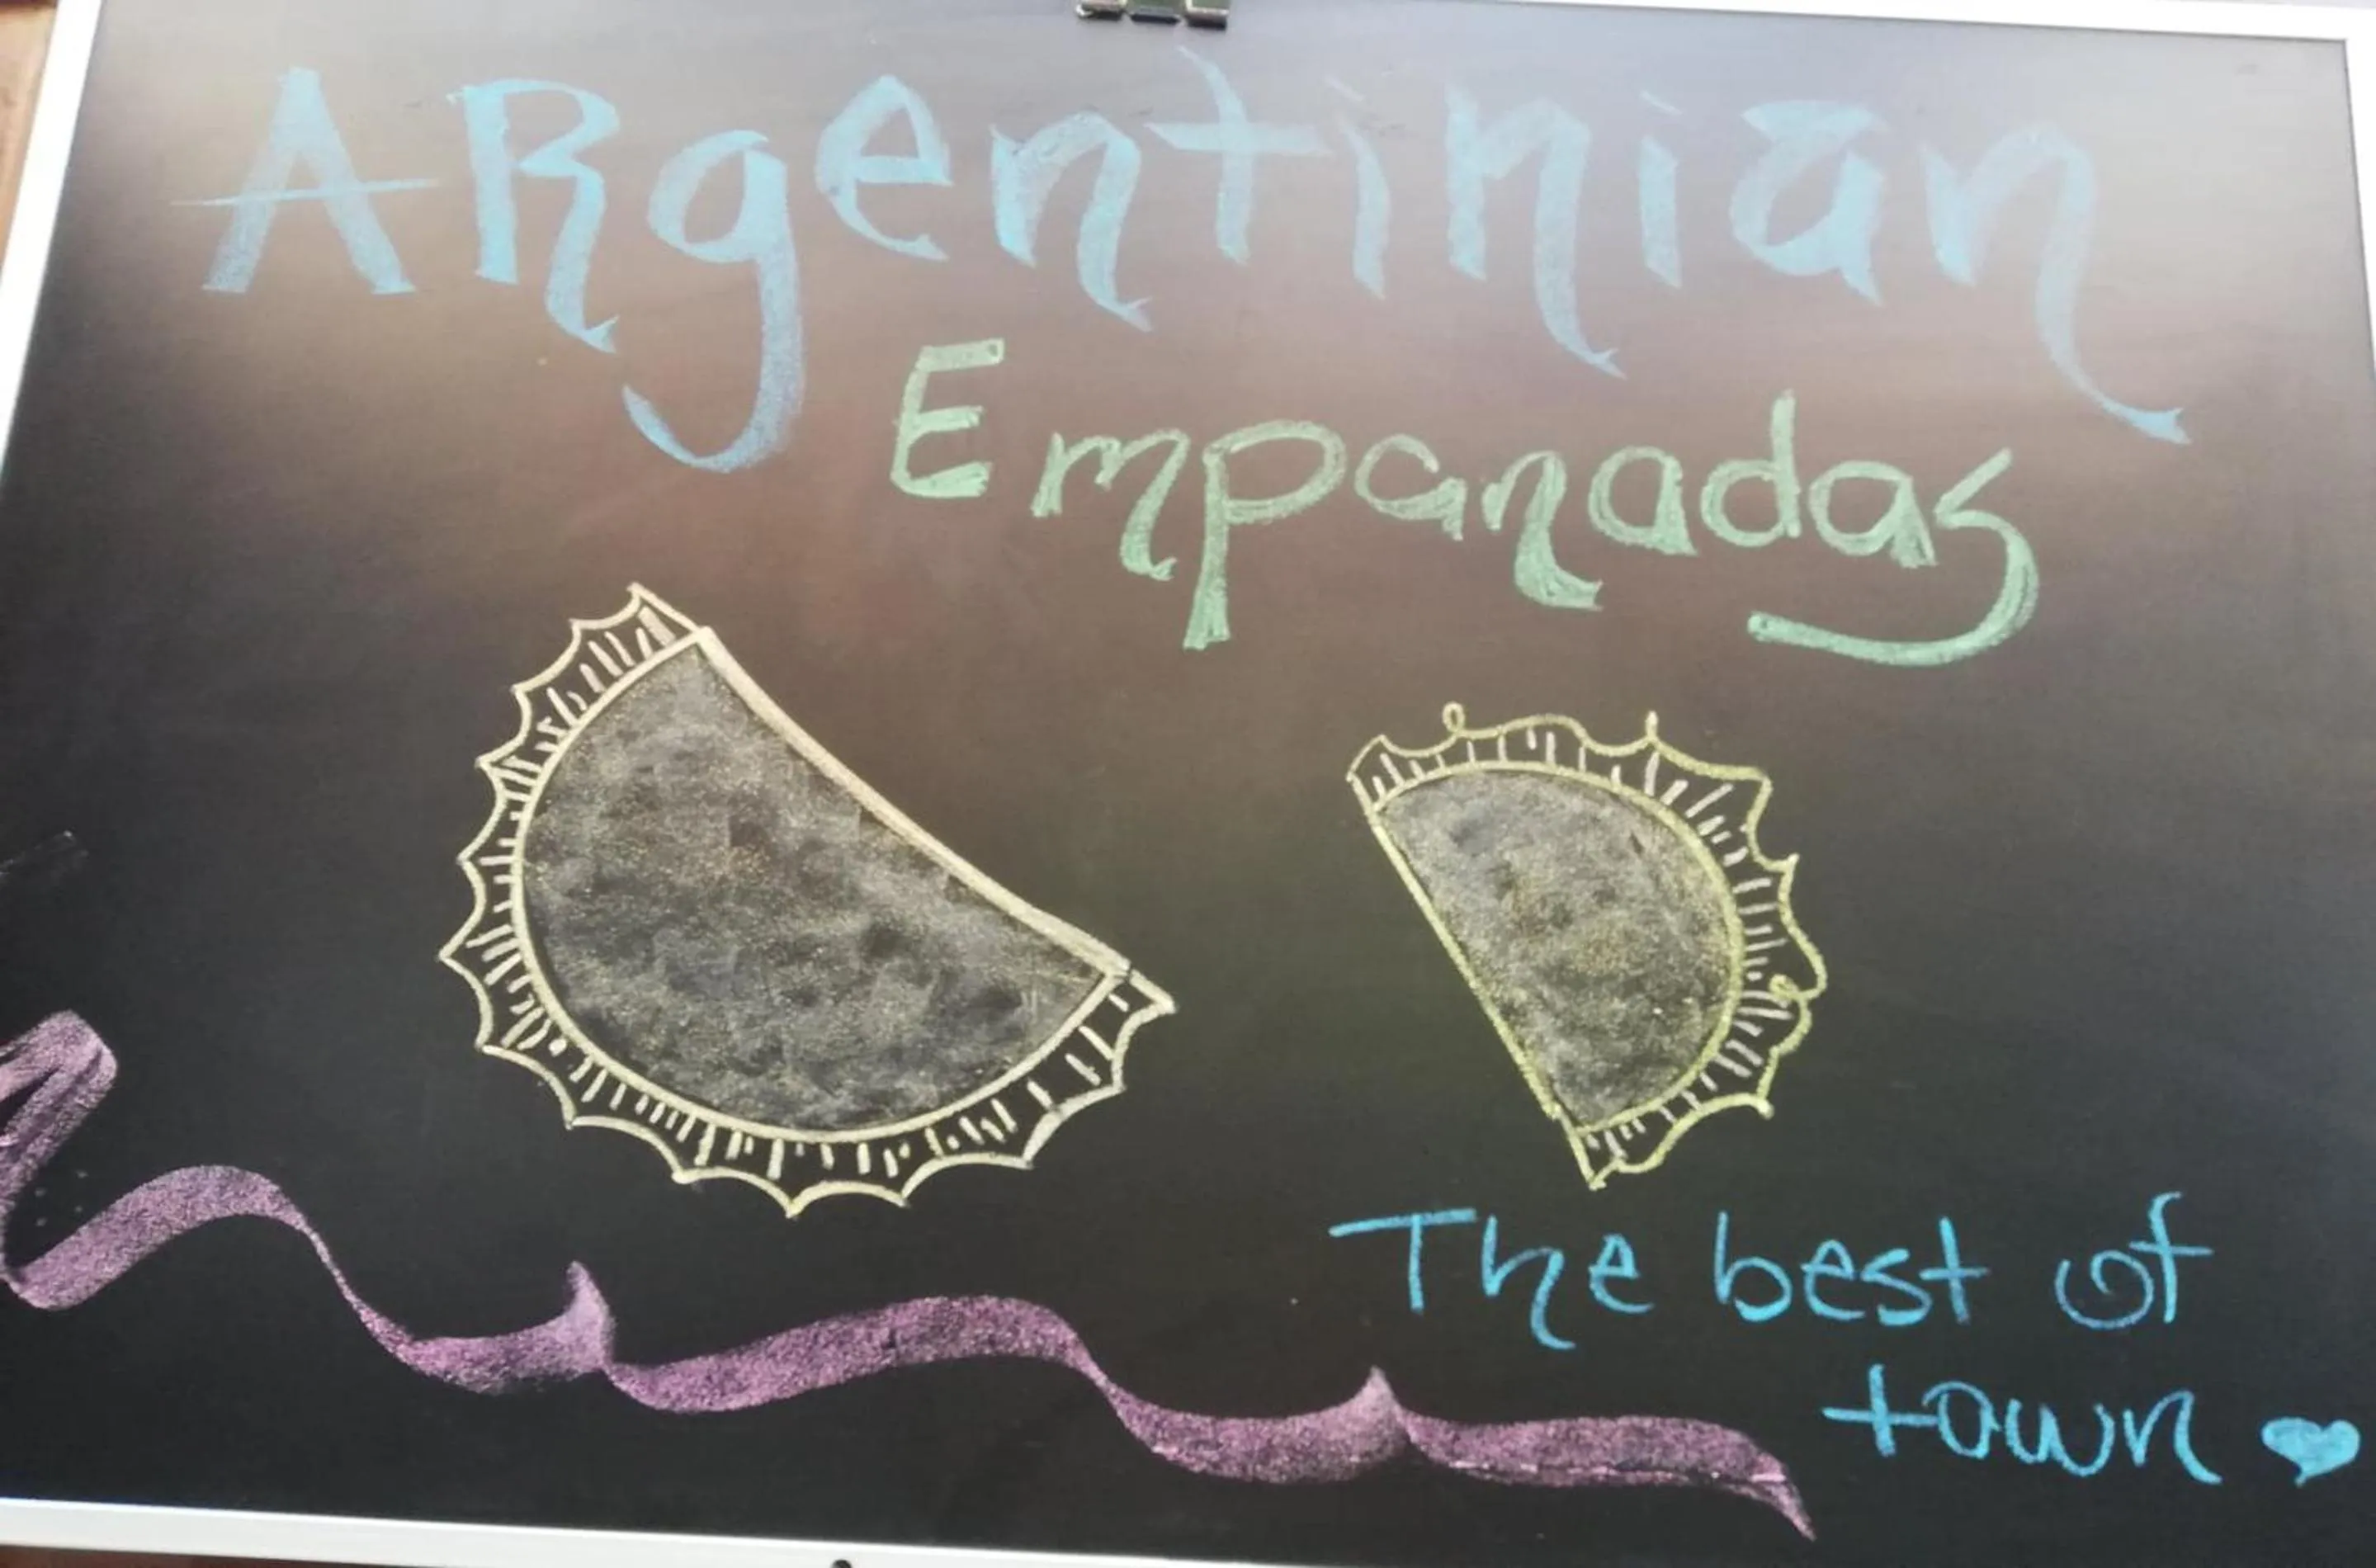 ARgentinian
Empanadas
The best of
town